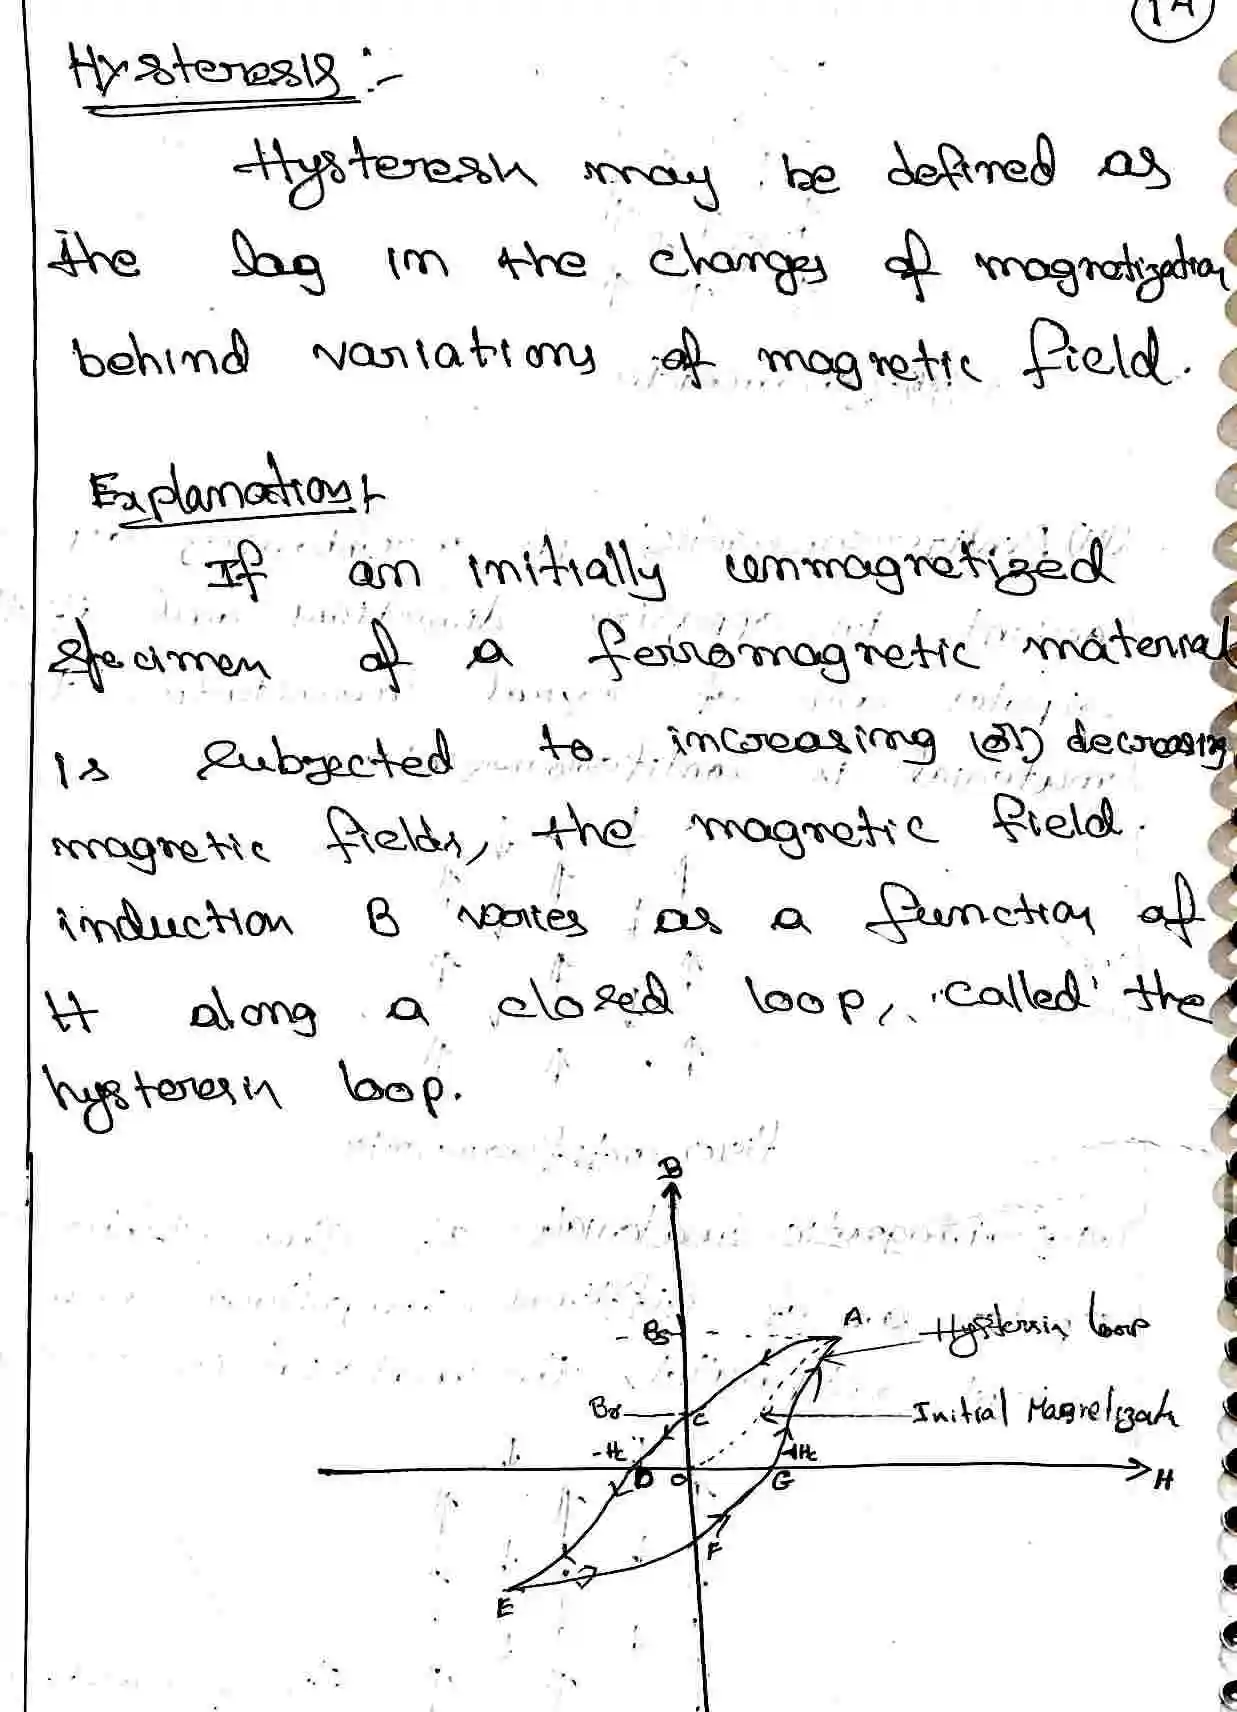 14
Hysteresis :-
Hysteresis may be defined as
the lag in the changes of magnetization
behind variations of magnetic field.
Explanation:-
If an initially unmagnetized
specimen of a ferromagnetic material
is subjected to increasing (or) decreasing
magnetic fields, the magnetic field
induction B varies as a function of
H along a closed loop, called the
hysteresis loop.
B
Bs A Hysteresis loop
Br C Initial Magnetizati
-Hc +Hc
D O G H
F
E